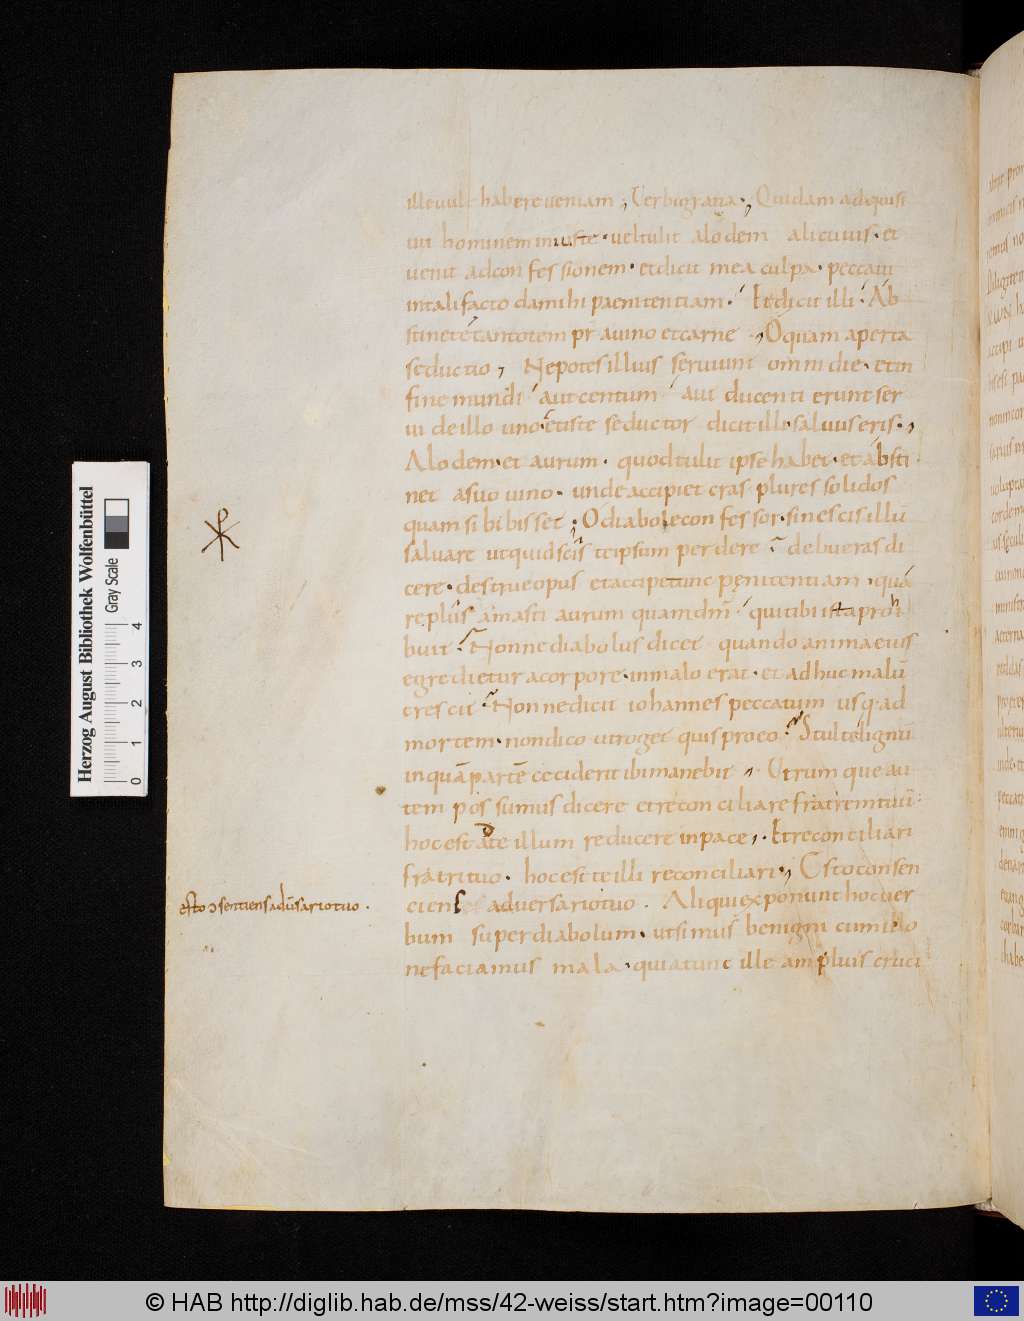 ille vult habere veniam ; Verbi gratia ·, Quidam adquisi
vit hominem iniuste · vel tulit alodem alicuius · et
venit ad confessionem · et dicit mea culpa · peccavi
in tali facto da mihi paenitentiam · Et dicit illi · Ab
stinete tantotem pr a vino et carne ·, O quam aperta
seductio , Nepotes illius serviunt omni die · et in
fine mundi aut centum aut ducenti erunt ser
vi de illo uno · et iste seductor dicit illi · salvus eris ·,
Alodem · et aurum · quod tulit ipse habet · et absti
net a suo vino · unde accipiet cras plures solidos
quam si bibisset ; O diabole confessor · si nescis illū
salvare ut quid scis te ipsum perdere · debueras di
cere · destrue opus et accipe tunc penitentiam · quā
re plus amasti aurum quam dm̄ · qui tibi ista prohi
buit · Nonne diabolus dicet · quando anima eius
egredietur a corpore · in malo erat · et adhuc malū
crescit · Nonne dicit iohannes peccatum usq · ad
mortem · non dico ut roget quis pro eo · Stulte lignū
in quā partē ceciderit ibi manebit ,· Utrumque au
tem possumus dicere et reconciliare fratrem tuū ·
hoc est ad te illum reducere in pace ,· Et reconciliari
fratri tuo · hoc est te illi reconciliari ·, Esto consen
ciens adversario tuo · Aliqui exponunt hoc ver
bum super diabolum · ut simus benigni cum illo
ne faciamus mala · quia tunc ille amplius cruci
esto ɔsentiens advsario tuo ·
Herzog August Bibliothek Wolfenbüttel
Gray Scale
0 1 2 3 4
© HAB http://diglib.hab.de/mss/42-weiss/start.htm?image=00110